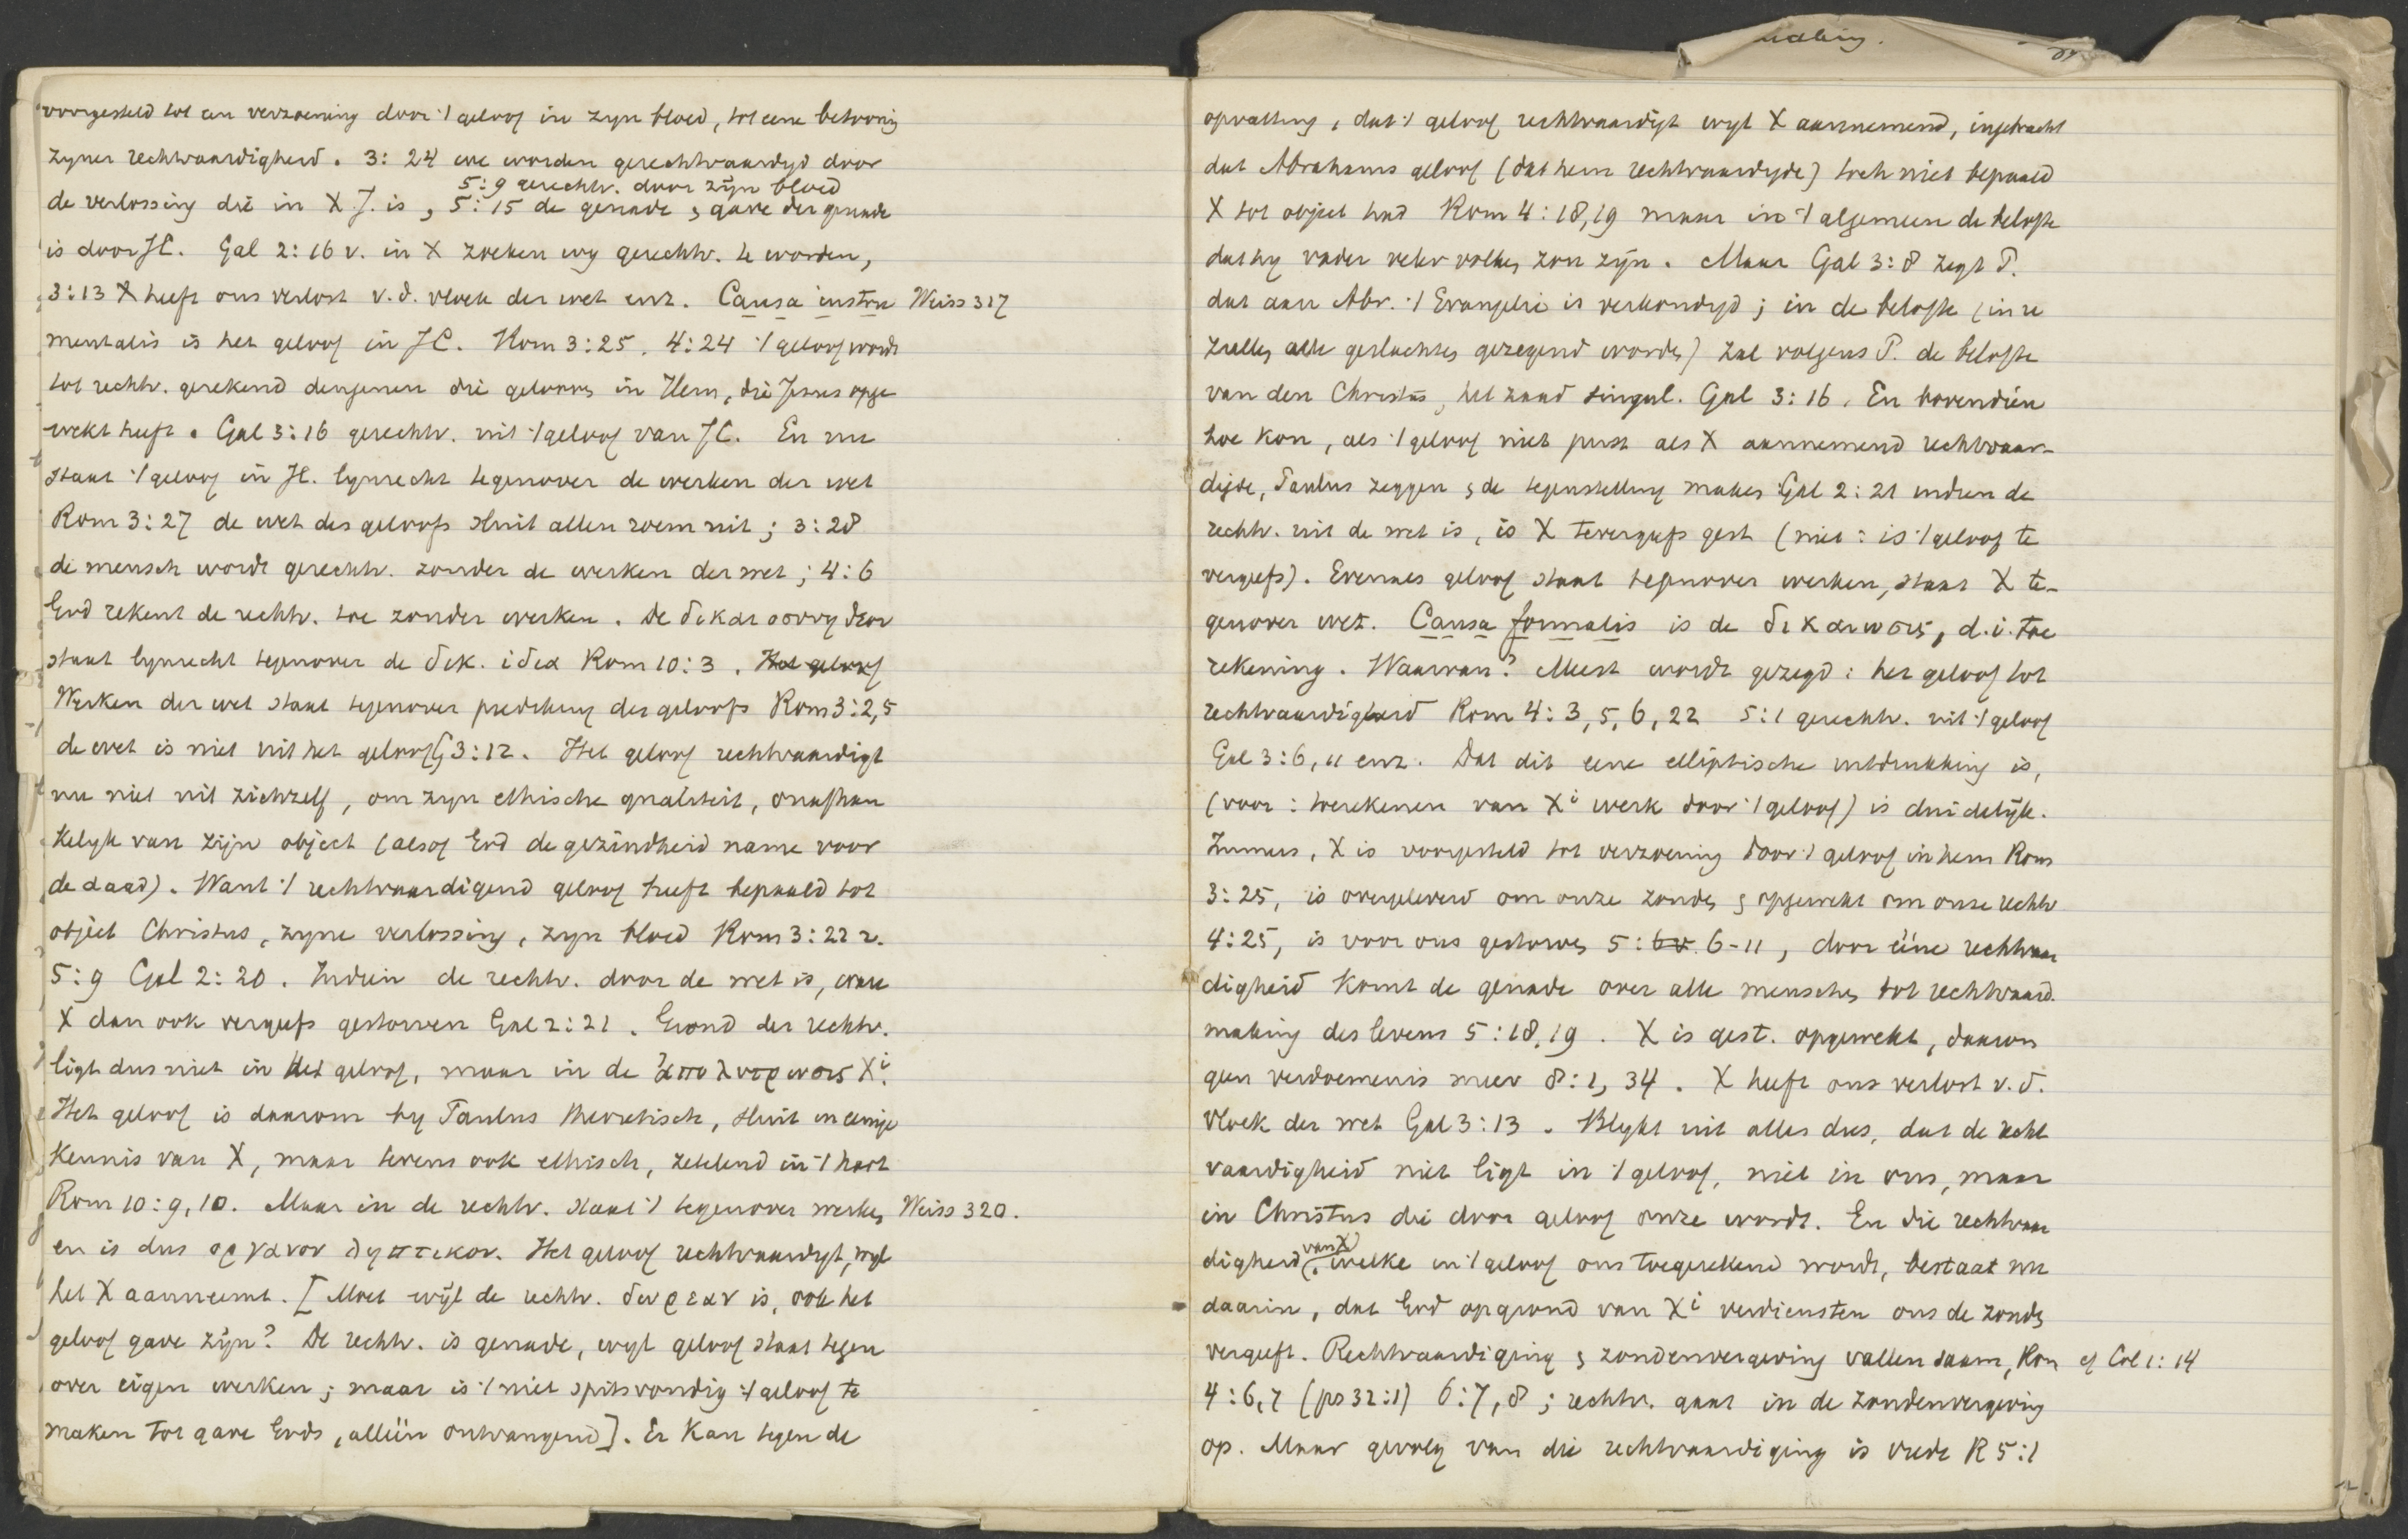 voorgesteld tot een verzoening door 't geloof in zyn bloed, tot eene betooning
zyner rechtvaardigheid. 3:24 we worden gerechtvaardigd door
5:9 gerechtv. door zijn bloed
de verlossing die in X J. is, 5:15 de genade & gave der genade
is door JC. Gal 2:16 v. in X zoeken wy gerechtv. te worden,
3:13 X heeft ons verlost v.d. vloek der wet enz. Causa instru Weiss 317
mentalis is het geloof in JC. Rom 3:25. 4:24 't geloof wordt
tot rechtv. gerekend dengenen die gelooven in Hem, die Jesus opge
wekt heeft. Gal 3:16 gerechtv. uit 't geloof van JC. En nu
staat 't geloof in JC. lynrecht tegenover de werken der wet
Rom 3:27 de wet des geloofs sluit allen roem uit; 3:28
de mensch wordt gerechtv. zonder de werken der wet; 4:6
God rekent de rechtv. toe zonder werken. De δικαιοσυνη θεου
staat lynrecht tegenover de δικ. ιδια Rom 10:3. Het geloof
Werken der wet staat tegenover prediking des geloofs Rom 3:2,5
de wet is niet uit het geloof G 3:12. Het geloof rechtvaardigt
nu niet uit zichzelf, om zyn ethische qualiteit, onafhan
kelyk van zijn object (alsof God de gezindheid name voor
de daad). Want 't rechtvaardigend geloof heeft bepaald tot
object Christus, zyne verlossing, zyn bloed Rom 3:22 v.
5:9 Gal 2:20. Indien de rechtv. door de wet is, ware
X dan ook vergeefs gestorven Gal 2:21. Grond der rechtv.
ligt dus niet in het geloof, maar in de ἀπολυτρωσις Xi.
Het geloof is daarom by Paulus theoretisch, sluit in eenige
kennis van X, maar tevens ook ethisch, zetelend in 't hart
Rom 10:9,10. Maar in de rechtv. staat 't tegenover werken, Weiss 320.
en is dus οργανον ληπτικον. Het geloof rechtvaardigt, wyl
het X aanneemt. [Moet wijl de rechtv. δωρεαν is, ook het
geloof gave zijn? De rechtv. is genade, wyl geloof staat tegen
over eigen werken; maar is 't niet spitsvondig 't geloof te
maken tot gave Gods, alleen ontvangend]. Er kan tegen de
opvatting, dat 't geloof rechtvaardigt wyl X aannemend, ingebracht
dat Abrahams geloof (dat hem rechtvaardigde) toch niet bepaald
X tot object had Rom 4:18,19 maar in 't algemeen de belofte
dat hy vader veler volken zou zyn. Maar Gal 3:8 zegt P.
dat aan Abr. 't Evangelie is verkondigd; in de belofte (in u
zullen alle geslachten gezegend worden) zal volgens P. de belofte
van den Christus, het zaad singul. Gal 3:16. En bovendien
hoe kon, als 't geloof niet juist als X aannemend rechtvaar-
digde, Paulus zeggen & de tegenstelling maken Gal 2:21 indien de
rechtv. uit de wet is, is X tevergeefs gest (niet: is 't geloof te
vergeefs). Evenals geloof staat tegenover werken, staat X te-
genover wet. Causa formalis is de δικαιωσις, d.i. toe
rekening. Waarvan? Meest wordt gezegd: het geloof tot
rechtvaardigheid Rom 4:3,5,6,22 5:1 gerechtv. uit 't geloof
Gal 3:6,11 enz. Dat dit eene elliptische uitdrukking is,
(voor: toerekenen van Xi werk door 't geloof) is duidelijk.
Immers, X is voorgesteld tot verzoening door 't geloof in hem Rom
3:25, is overgeleverd om onze zonden & opgewekt om onze rechtv
4:25, is voor ons gestorven 5:6 v. 6-11, door eéne rechtvaar
digheid komt de genade over alle menschen tot rechtvaard.
making des levens 5:18,19. X is gest. opgewekt, daarom
geen verdoemenis meer 8:1, 34. X heeft ons verlost v.d.
vloek der wet Gal 3:13. Blykt uit alles dus, dat de recht
vaardigheid niet ligt in 't geloof, niet in ons, maar
in Christus die door geloof onze wordt. En die rechtvaar
van X
digheid, welke in 't geloof ons toegerekend wordt, bestaat nu
daarin, dat God op grond van Xi verdiensten ons de zonden
vergeeft. Rechtvaardiging & zondenvergeving vallen saam, Rom cf Col 1:14
4:6,7 (ps 32:1) 6:7,8; rechtv. gaat in de zondenvergeving
op. Maar gevolg van die rechtvaardiging is vrede R 5:1